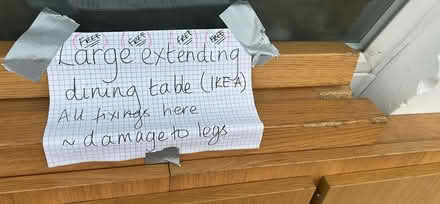 FREE FREE FREE FREE
Large extending
dining table (IKEA)
All fixings here
~ damage to legs